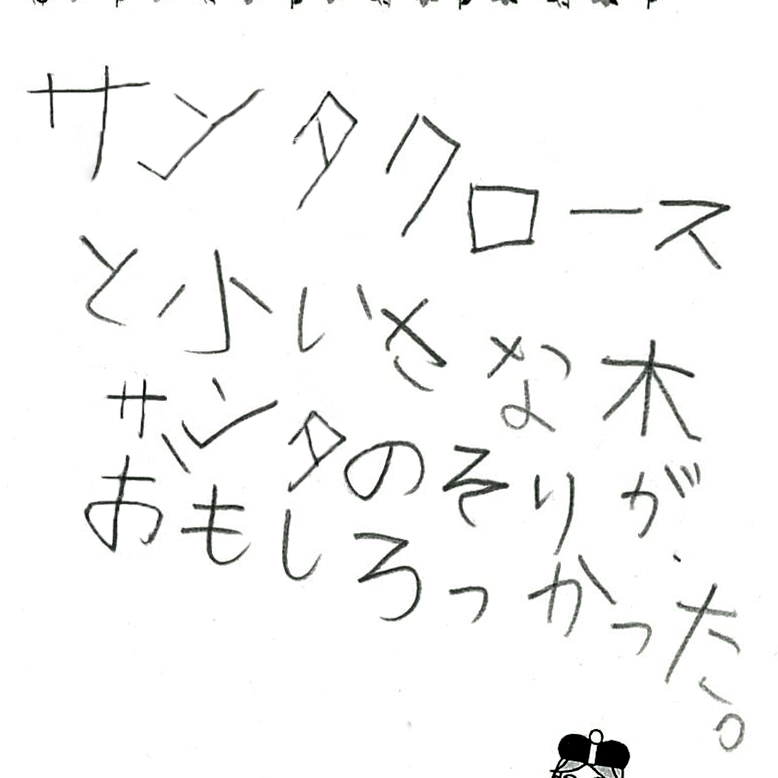 サンタクロース
と小いさな木
サンタのそりが
おもしろっかった。